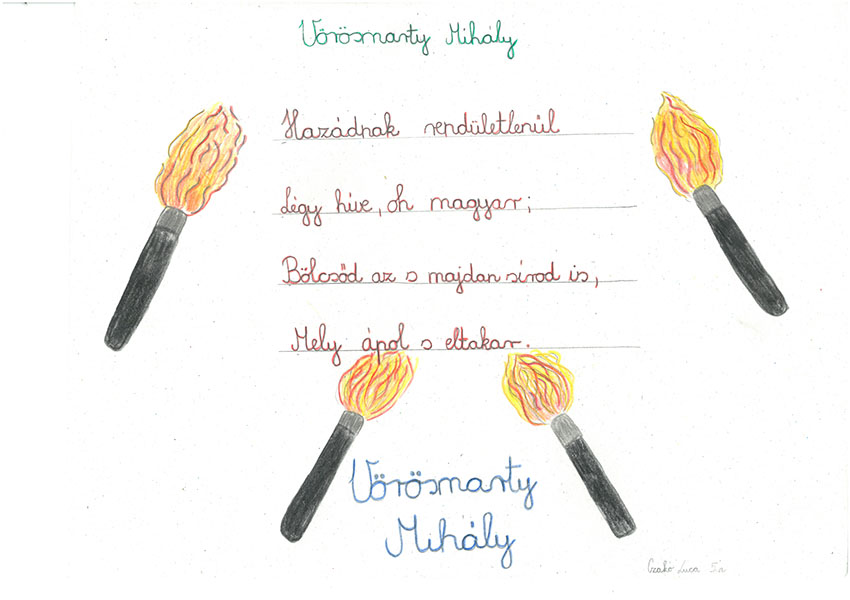 Vörösmarty Mihály
Hazádnak rendületlenűl
Légy híve, oh magyar;
Bölcsőd az s majdan sírod is,
Mely ápol s eltakar.
Vörösmarty
Mihály
Czakó Luca 5.a